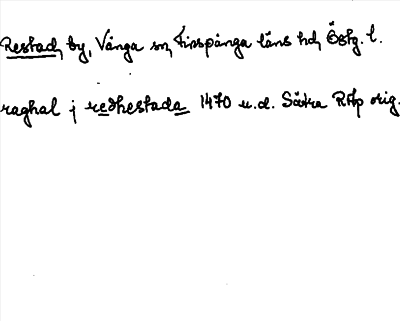 Restad, by, Vånga sn, Finspånga läns hd, Östg. l.
raghal j redhestada 1470 u.d. Sätra RAp orig.